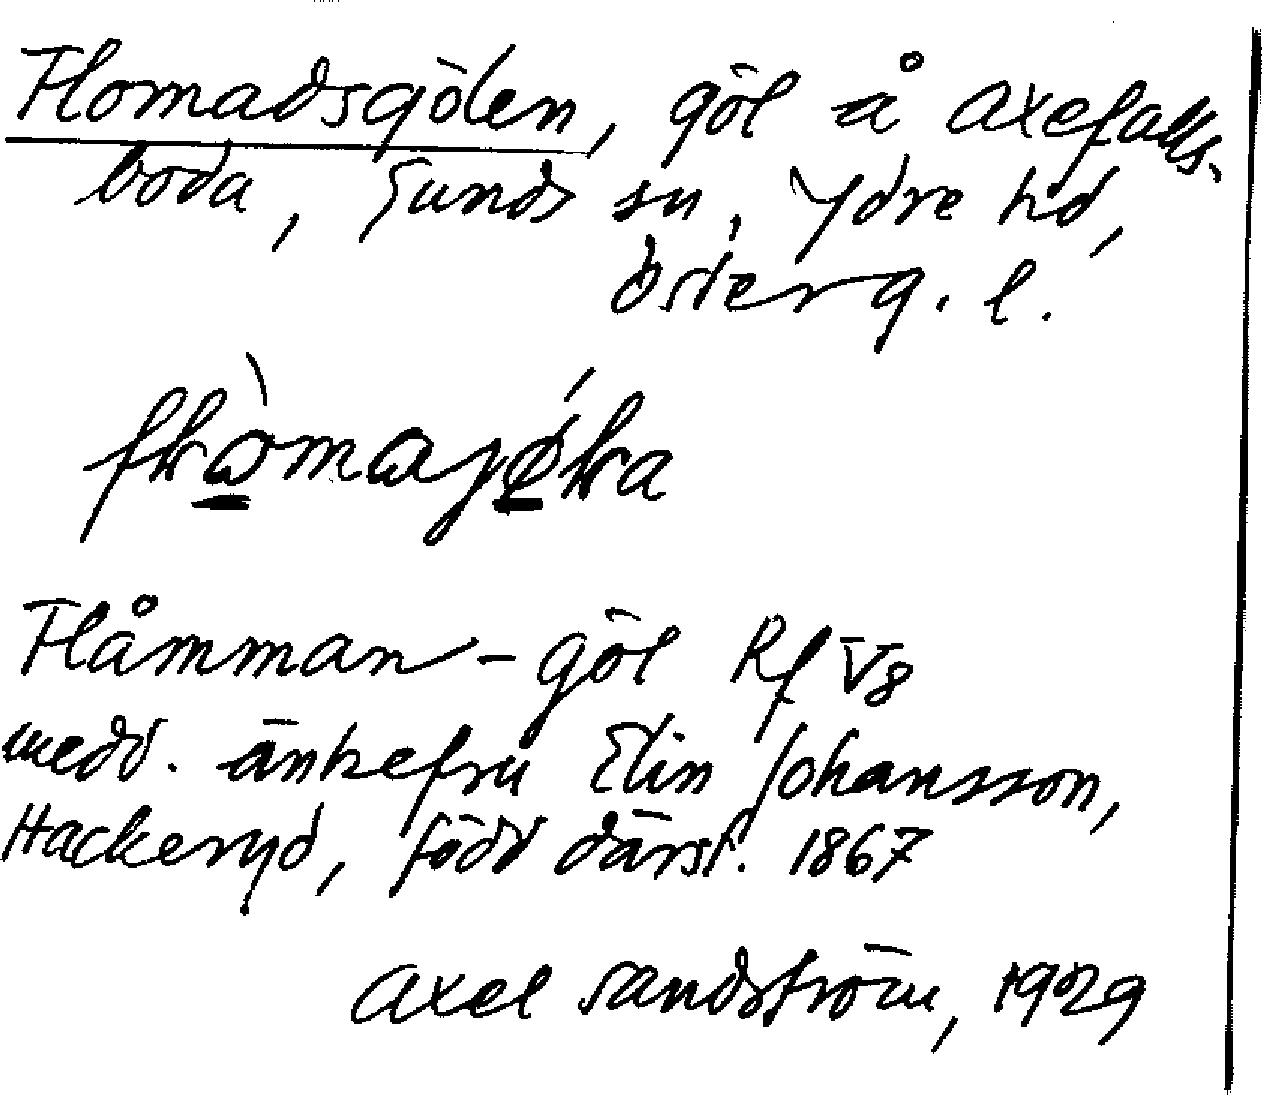 Flomadsgölen, göl å Axefalls-
boda, Sunds sn, Ydre hd,
Österg. l.
Flåmman-göl Rf V8
medd. änkefru Elin Johansson,
Hackeryd, född därst. 1867
Axel Sandström, 1929